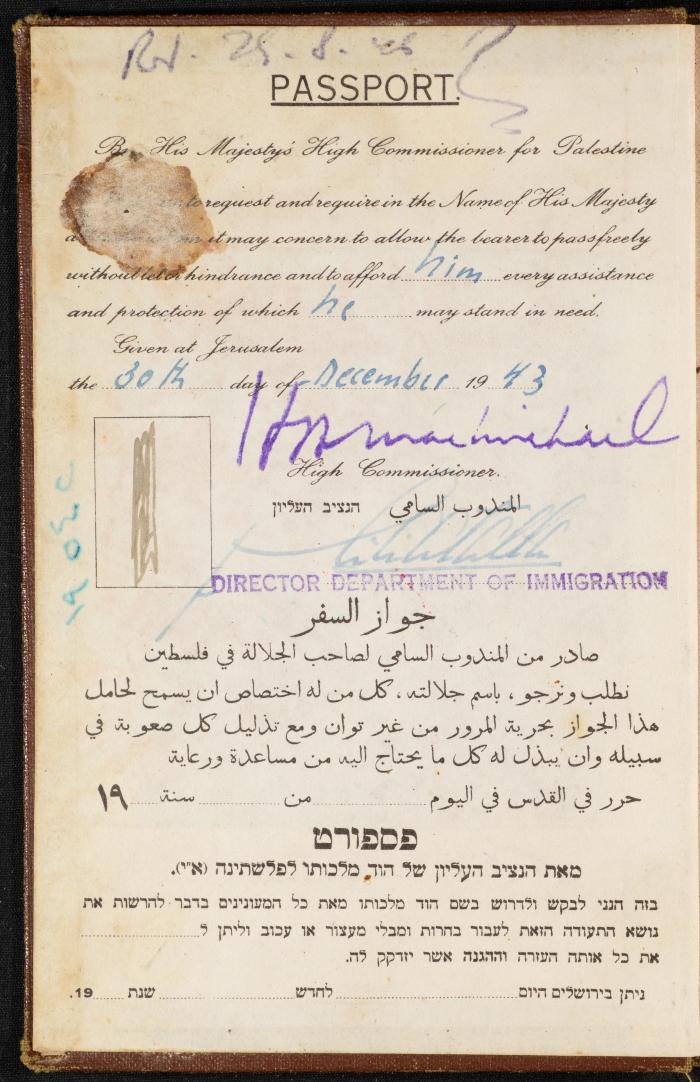 25.8.46
PASSPORT.
His Majesty's High Commissioner for Palestine
to request and require in the Name of His Majesty
it may concern to allow the bearer to pass freely
without let or hindrance and to afford him every assistance
and protection of which he may stand in need.
Given at Jerusalem
the 30th day of December 1943
High Commissioner.
المندوب السامي הנציב העליון
DIRECTOR DEPARTMENT OF IMMIGRATION
جواز السفر
صادر من المندوب السامي لصاحب الجلالة في فلسطين
نطلب ونرجو، باسم جلالته، كل من له اختصاص ان يسمح لحامل
هذا الجواز بحرية المرور من غير توان ومع تذليل كل صعوبة في
سبيله وان يبذل له كل ما يحتاج اليه من مساعدة ورعاية
حرر في القدس في اليوم من سنة ١٩
פספורט
מאת הנציב העליון של הוד מלכותו לפלשתינה (א"י).
בזה הנני לבקש ולדרוש בשם הוד מלכותו מאת כל המעונינים בדבר להרשות את
נושא התעודה הזאת לעבור בחרות ומבלי מעצור או עכוב וליתן ל
את כל אותה העזרה וההגנה אשר יזדקק לה.
ניתן בירושלים היום לחדש שנת 19.